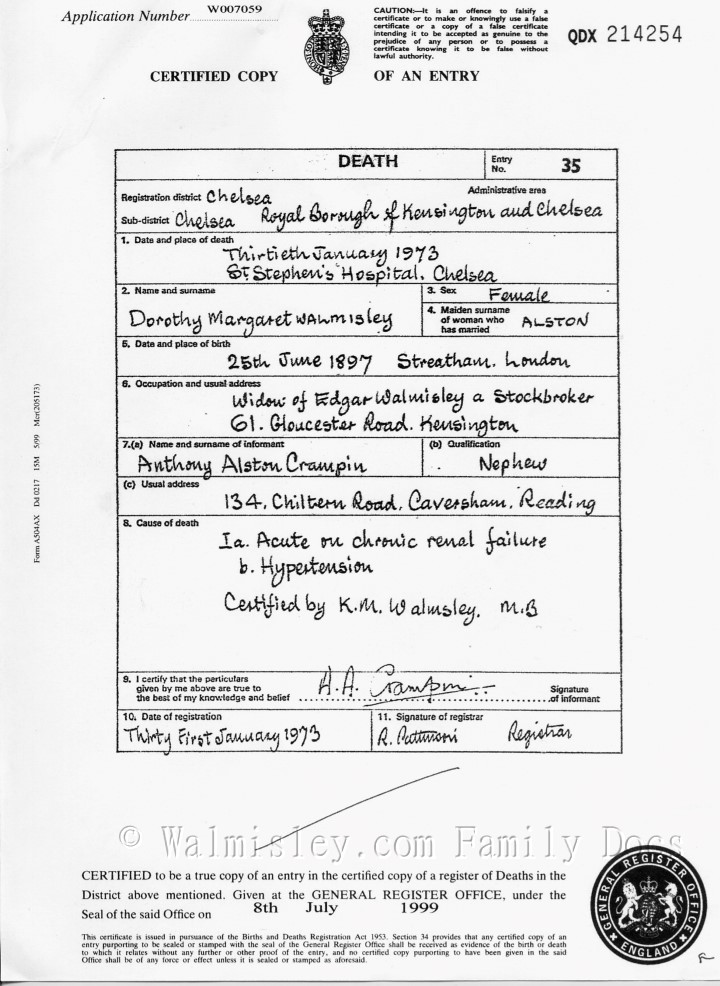 Application Number W007059
CAUTION:—It is an offence to falsify a
certificate or to make or knowingly use a false
certificate or a copy of a false certificate
intending it to be accepted as genuine to the
prejudice of any person or to possess a
certificate knowing it to be false without
lawful authority.
QDX 214254
CERTIFIED COPY OF AN ENTRY
DEATH
Entry No. 35
Registration district Chelsea
Administrative area
Sub-district Chelsea Royal Borough of Kensington and Chelsea
1. Date and place of death
Thirtieth January 1973
St. Stephen's Hospital, Chelsea
2. Name and surname
Dorothy Margaret WALMISLEY
3. Sex Female
4. Maiden surname
of woman who
has married
ALSTON
5. Date and place of birth
25th June 1897 Streatham. London
6. Occupation and usual address
Widow of Edgar Walmisley a Stockbroker
61. Gloucester Road. Kensington
7.(a) Name and surname of informant
Anthony Alston Crampin
(b) Qualification
Nephew
(c) Usual address
134, Chiltern Road, Caversham, Reading
8. Cause of death
Ia. Acute on chronic renal failure
b. Hypertension
Certified by K.M. Walmsley. M.B
9. I certify that the particulars
given by me above are true to
the best of my knowledge and belief
A.A. Crampin
Signature
of informant
10. Date of registration
Thirty First January 1973
11. Signature of registrar
R. Registrar
© Walmisley.com Family Docs
CERTIFIED to be a true copy of an entry in the certified copy of a register of Deaths in the
District above mentioned. Given at the GENERAL REGISTER OFFICE, under the
Seal of the said Office on 8th July 1999
This certificate is issued in pursuance of the Births and Deaths Registration Act 1953. Section 34 provides that any certified copy of an
entry purporting to be sealed or stamped with the seal of the General Register Office shall be received as evidence of the birth or death
to which it relates without any further or other proof of the entry, and no certified copy purporting to have been given in the said
Office shall be of any force or effect unless it is sealed or stamped as aforesaid.
GENERAL REGISTER OFFICE
ENGLAND
Form A504AX Dd 0217 15M 5/99 Mcr(205173)